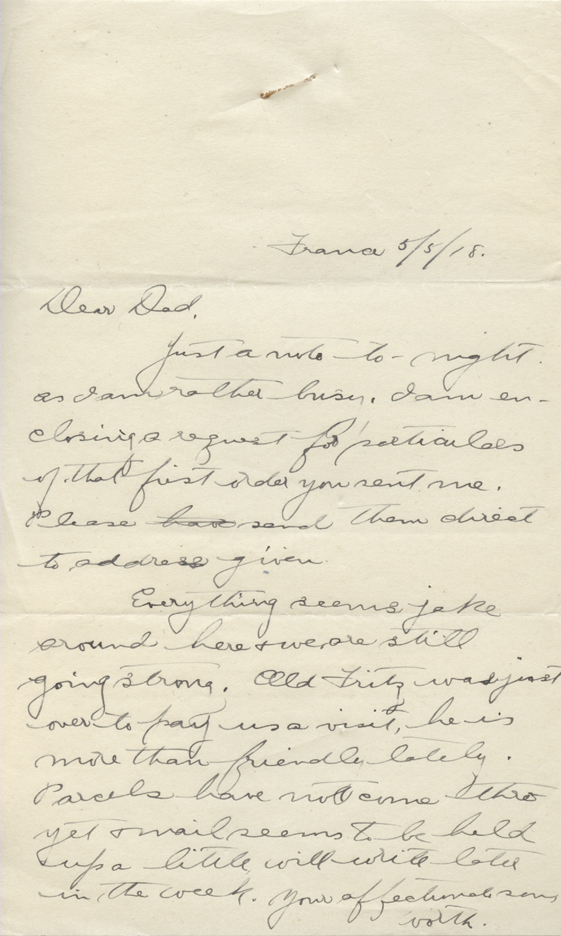 France 5/5/18.
Dear Dad,
Just a note to-night
as I am rather busy. I am en-
closing a request for particulars
of that first order you sent me.
Please have send them direct
to address given.
Everything seems jake
around here & we are still
going strong. Old Fritz was just
over to pay us a visit, he is
more than friendly lately.
Parcels have not come thro
yet & mail seems to be held
up a little, will write later
in the week. Your affectionate son,